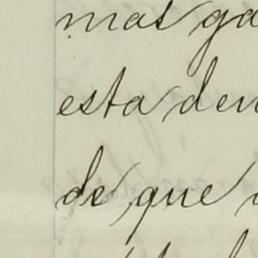 mas ga
esta den
de que